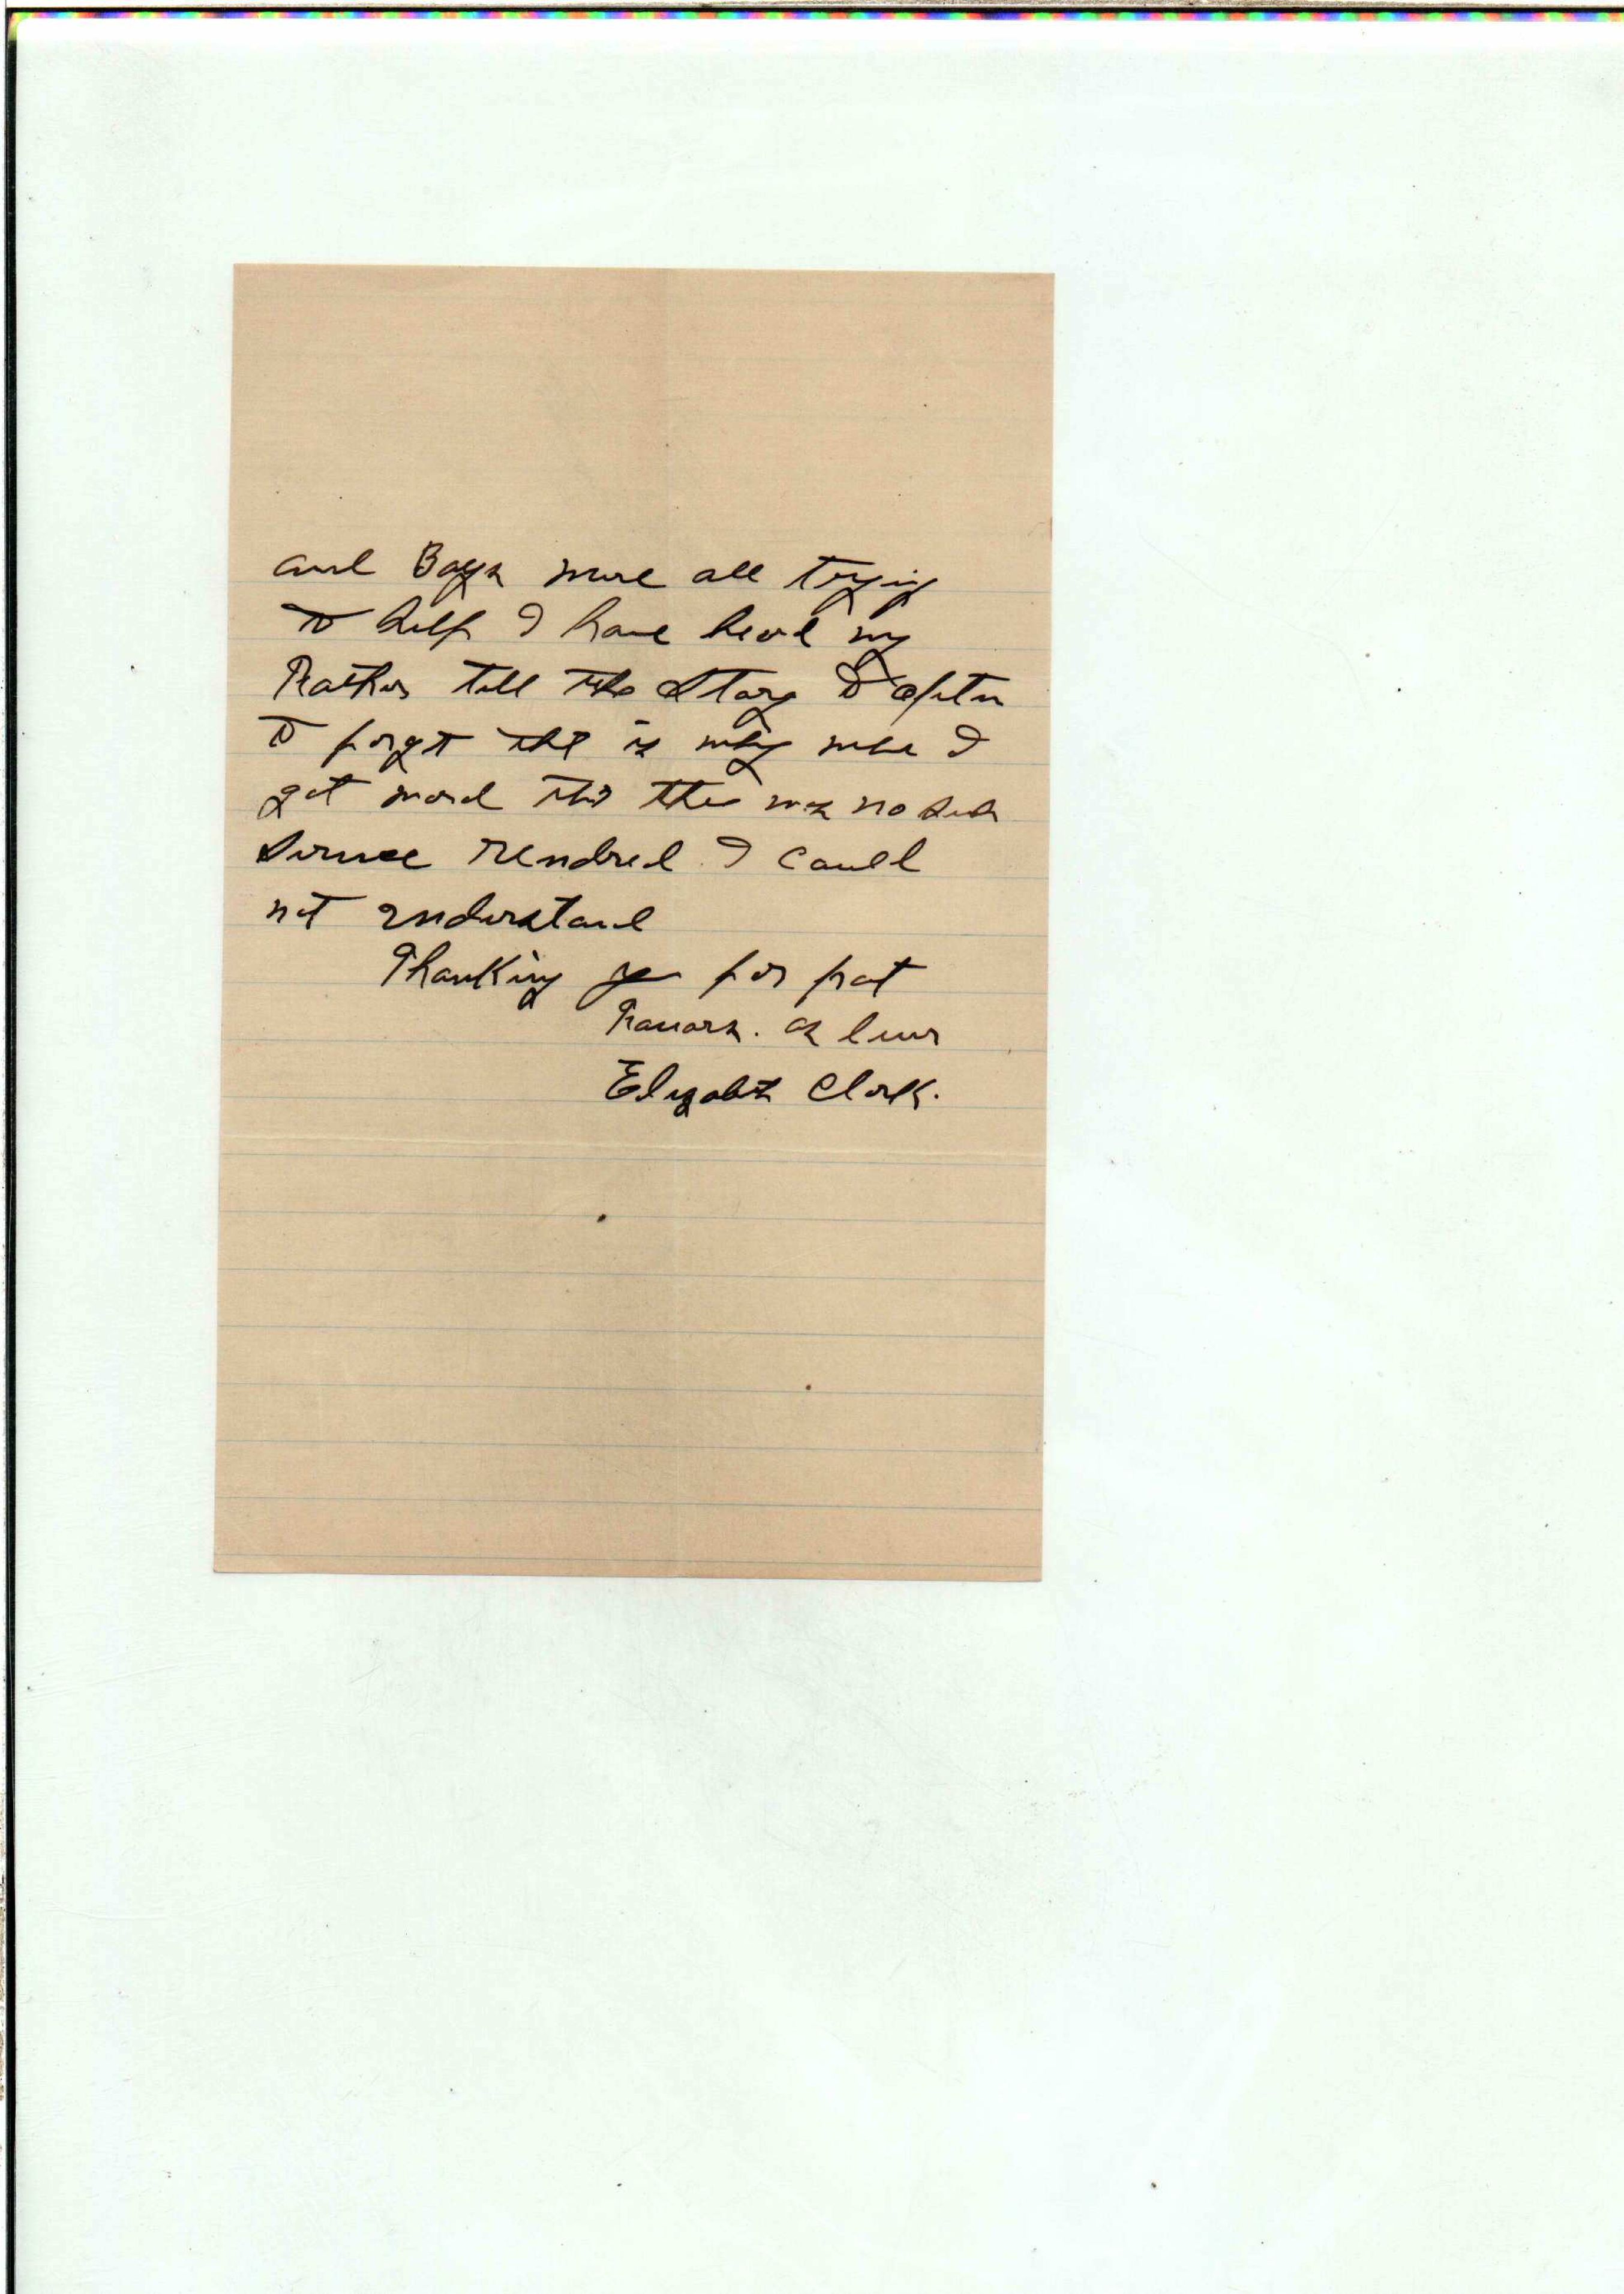 and Boys were all trying
to help I have heard my
Father tell the story to often
to forget that is why when I
got word that there was no such
Service rendred. I could
not understand
Thanking you for past
Favors. as ever
Elizabeth Clark.